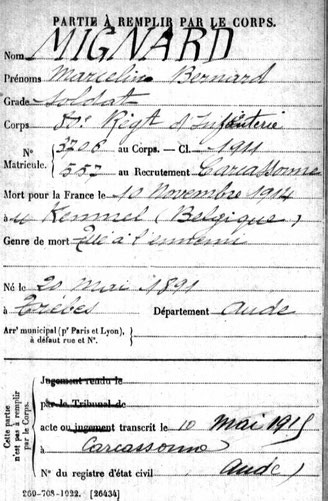 PARTIE À REMPLIR PAR LE CORPS.
Nom MIGNARD
Prénoms Marcelin Bernard
Grade Soldat
Corps Régt d'Infanterie
N° 3706 au Corps. — Cl. 1911
Matricule. 553 au Recrutement Carcassonne
Mort pour la France le 10 Novembre 1914
à Kemmel (Belgique)
Genre de mort Tué à l'ennemi
Né le 20 Mai 1891
à Trèbes Département Aude
Arr' municipal (p' Paris et Lyon),
à défaut rue et N°.
Cette partie
n'est pas à remplir
par le Corps.
Jugement rendu le
par le Tribunal de
acte ou jugement transcrit le 10 Mai 1915
à Carcassonne
N° du registre d'état civil Aude)
269-708-1922. [26434]